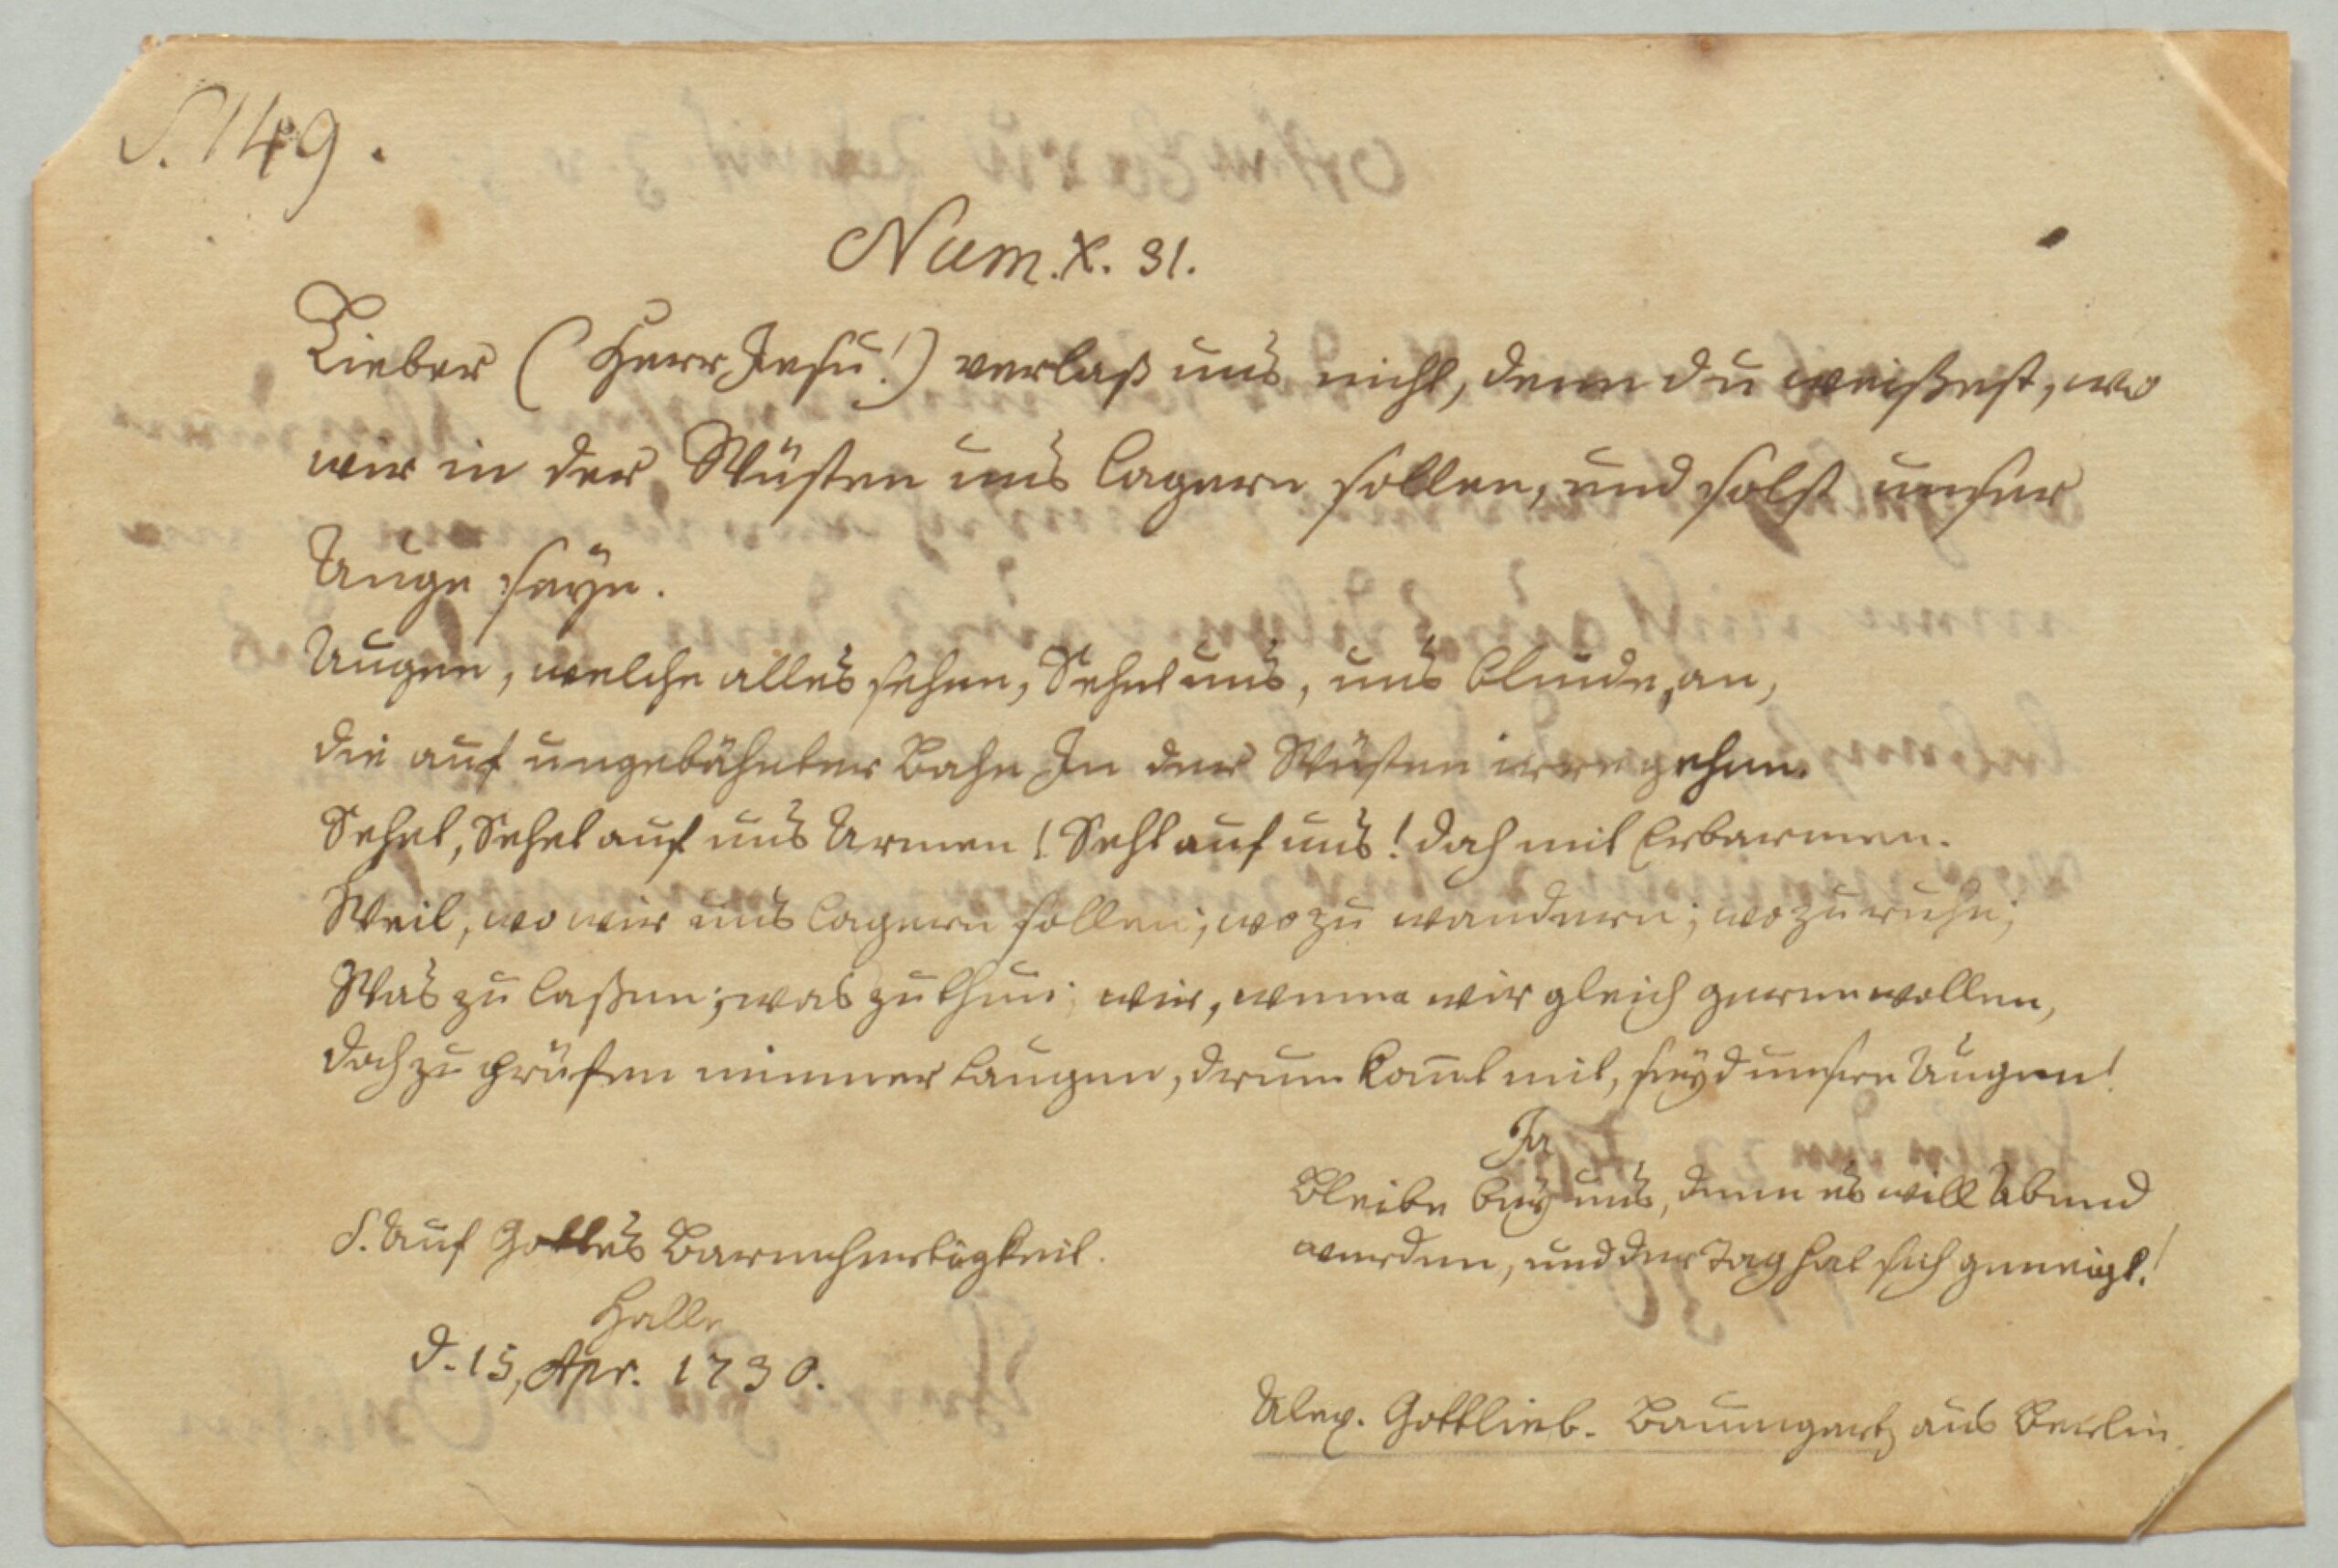 S. 149.
Num. X. 31.
Lieber (Herr Jesu!) verlaß uns nicht, denn du weißest, wo
wir in der Wüsten uns lagern sollen, und solst unser
Auge seyn.
Augen, welche alles sehen, Sehet uns, uns blinde, an,
die auf ungebähnter Bahn In der Wüsten irre gehen.
Sehet, Sehet auf uns Armen! Seht auf uns! doch mit Erbarmen.
Weil, wo wir uns lagern sollen; wo zu wandern; wo zu ruhn;
Was zu laßen; was zu thun; wir, wenn wir gleich gerne wollen,
doch zu prüfen nimmer taugen, drum komt mit, seyd unsere Augen!
Ja
Bleibe bey uns, denn es will Abend
werden, und der Tag hat sich geneigt!
S. Auf Gottes Barmhertzigkeit.
Halle
d. 15, Apr. 1730.
Alex. Gottlieb. Baumgart aus Berlin